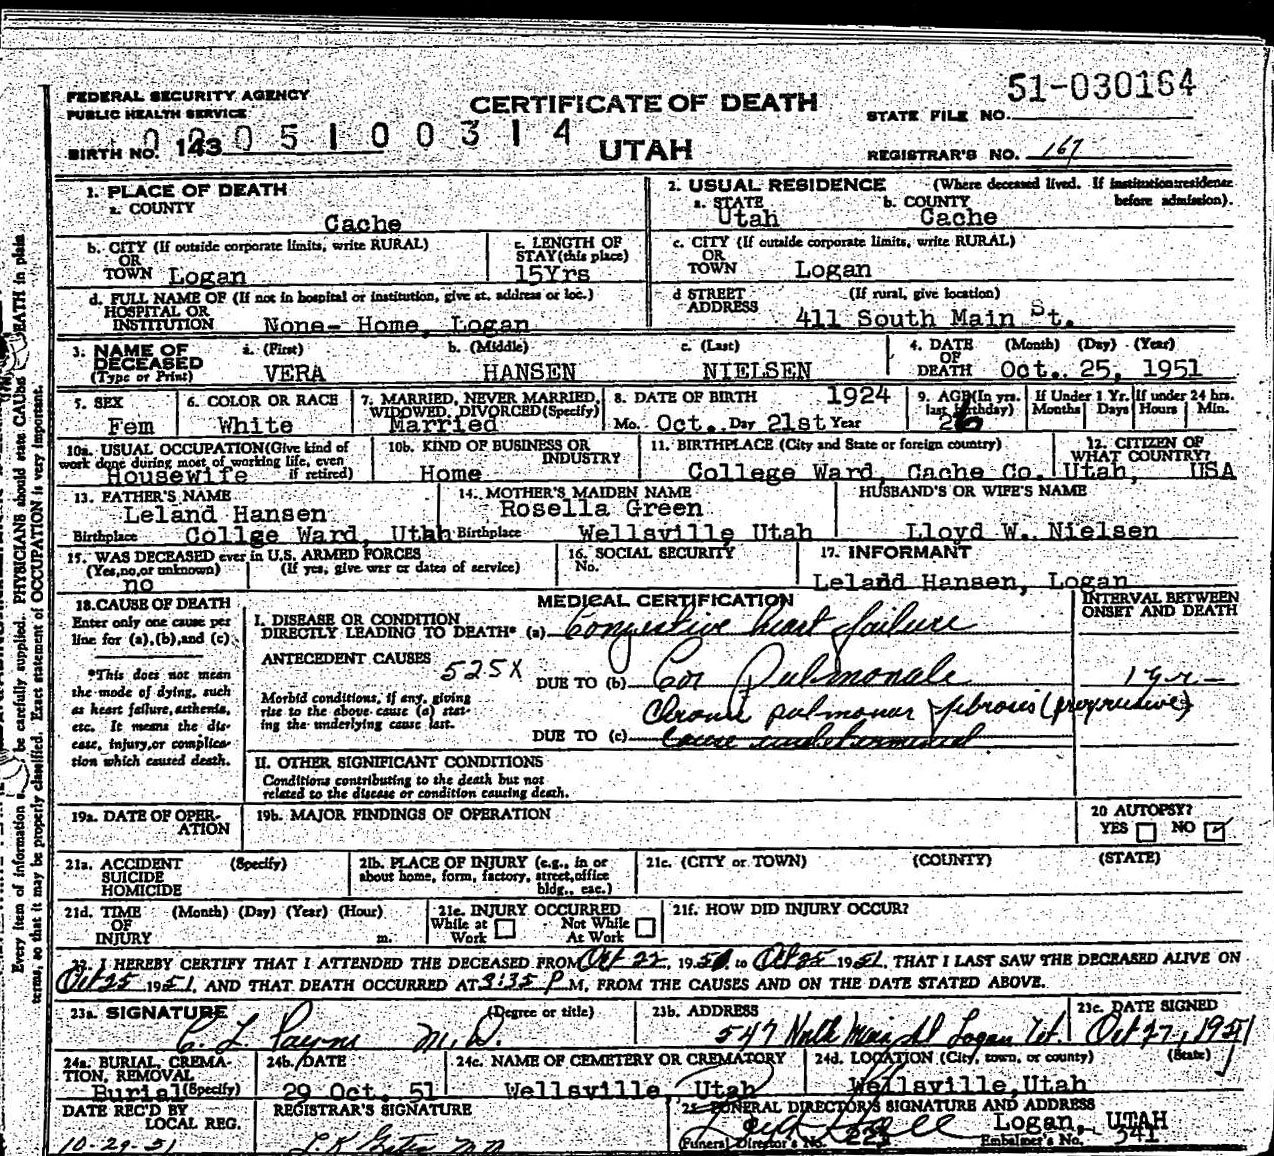 51-030164
FEDERAL SECURITY AGENCY
PUBLIC HEALTH SERVICE
CERTIFICATE OF DEATH
STATE FILE NO.
0 2 0 5 1 0 0 3 1 4
BIRTH NO. 143
UTAH
REGISTRAR'S NO. 167
1. PLACE OF DEATH
a. COUNTY
Cache
2. USUAL RESIDENCE (Where deceased lived. If institution: residence before admission).
a. STATE b. COUNTY
Utah Cache
b. CITY (If outside corporate limits, write RURAL)
OR
TOWN Logan
c. LENGTH OF
STAY (this place)
15Yrs
c. CITY (If outside corporate limits, write RURAL)
OR
TOWN Logan
d. FULL NAME OF (If not in hospital or institution, give st. address or loc.)
HOSPITAL OR
INSTITUTION None- Home, Logan
d STREET (If rural, give location)
ADDRESS 411 South Main St.
3. NAME OF DECEASED a. (First) b. (Middle) c. (Last)
(Type or Print) VERA HANSEN NIELSEN
4. DATE OF DEATH (Month) (Day) (Year)
Oct. 25, 1951
5. SEX
Fem
6. COLOR OR RACE
White
7. MARRIED, NEVER MARRIED,
WIDOWED, DIVORCED (Specify)
Married
8. DATE OF BIRTH 1924
Mo. Oct. Day 21st Year
9. AGE (In yrs. last birthday)
If Under 1 Yr. If under 24 hrs.
Months Days Hours Min.
10a. USUAL OCCUPATION (Give kind of
work done during most of working life, even
if retired)
Housewife
10b. KIND OF BUSINESS OR
INDUSTRY
Home
11. BIRTHPLACE (City and State or foreign country)
College Ward, Cache Co. Utah,
12. CITIZEN OF
WHAT COUNTRY?
USA
13. FATHER'S NAME
Leland Hansen
Birthplace Collge Ward, Utah
14. MOTHER'S MAIDEN NAME
Rosella Green
Birthplace Wellsville Utah
HUSBAND'S OR WIFE'S NAME
Lloyd W. Nielsen
15. WAS DECEASED ever in U.S. ARMED FORCES
(Yes, no, or unknown) (If yes, give war or dates of service)
no
16. SOCIAL SECURITY
No.
17. INFORMANT
Leland Hansen, Logan
18. CAUSE OF DEATH
Enter only one cause per
line for (a), (b), and (c)
*This does not mean
the mode of dying, such
as heart failure, asthenia,
etc. It means the dis-
ease, injury, or complica-
tion which caused death.
MEDICAL CERTIFICATION
INTERVAL BETWEEN
ONSET AND DEATH
I. DISEASE OR CONDITION
DIRECTLY LEADING TO DEATH* (a) Congestive heart failure
ANTECEDENT CAUSES 525X
DUE TO (b) Cor Pulmonale 1 yr
Morbid conditions, if any, giving
rise to the above cause (a) stat-
ing the underlying cause last.
Chronic pulmonary fibrosis (progressive)
DUE TO (c) Cause undetermined
II. OTHER SIGNIFICANT CONDITIONS
Conditions contributing to the death but not
related to the disease or condition causing death.
19a. DATE OF OPER-
ATION
19b. MAJOR FINDINGS OF OPERATION
20 AUTOPSY?
YES NO
21a. ACCIDENT (Specify)
SUICIDE
HOMICIDE
21b. PLACE OF INJURY (e.g., in or
about home, form, factory, street, office
bldg., esc.)
21c. (CITY or TOWN) (COUNTY) (STATE)
21d. TIME (Month) (Day) (Year) (Hour)
OF
INJURY m.
21e. INJURY OCCURRED
While at Work Not While At Work
21f. HOW DID INJURY OCCUR?
22. I HEREBY CERTIFY THAT I ATTENDED THE DECEASED FROM Oct 22, 1951, to Oct 25 1951, THAT I LAST SAW THE DECEASED ALIVE ON
Oct 25 1951, AND THAT DEATH OCCURRED AT 3:35 P M, FROM THE CAUSES AND ON THE DATE STATED ABOVE.
23a. SIGNATURE (Degree or title)
C. L. Payne M.D.
23b. ADDRESS
547 North Main St Logan Ut.
23c. DATE SIGNED
Oct 27, 1951
24a. BURIAL, CREMA-
TION, REMOVAL
Burial (Specify)
24b. DATE
29 Oct. 51
24c. NAME OF CEMETERY OR CREMATORY
Wellsville, Utah
24d. LOCATION (City, town, or county) (State)
Wellsville, Utah
DATE REC'D BY
LOCAL REG.
10-29-51
REGISTRAR'S SIGNATURE
25 FUNERAL DIRECTOR'S SIGNATURE AND ADDRESS
Logan, UTAH
(Funeral Director's No. 223 Embalmer's No. 341
Every item of information be carefully supplied. PHYSICIANS should state CAUSE DEATH in plain
terms, so that it may be properly classified. Exact statement of OCCUPATION is very important.